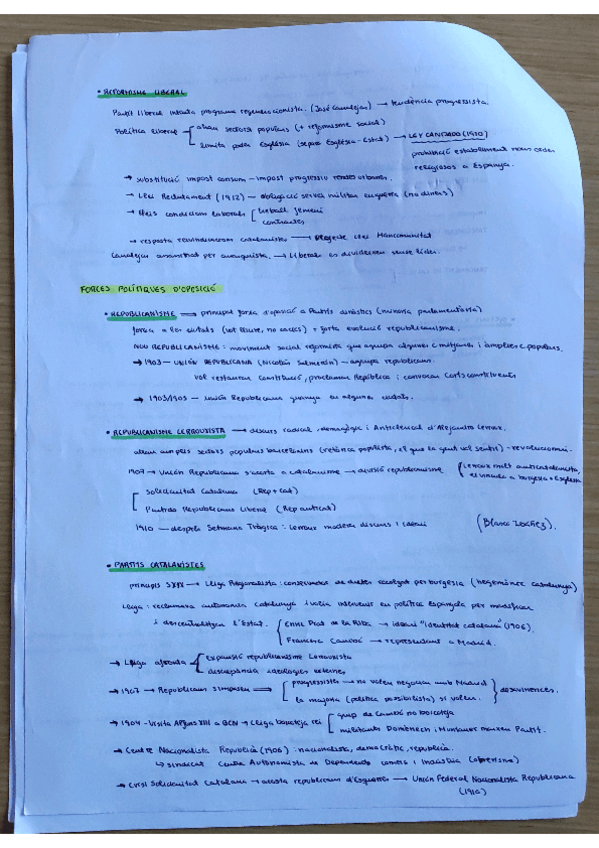 • REFORMISME LIBERAL
Partit liberal intenta programa regeneracionista. (José Canalejas) → tendència progressista
Política liberal atreure sectors populars (+ reformisme social)
limita poder Església (separa Església-Estat) → LEY CANDADO (1910)
prohibició establiment nous ordes
religiosos a Espanya.
→ substitució impost consum – impost progressiu rendes urbanes.
→ Llei Reclutament (1912) – obligació servei militar en guerra (no diners)
→ lleis condicions laborals treball femení
contractes
→ resposta reivindicacions catalanistes → Projecte Llei Mancomunitat
Canalejas assassinat per anarquista. → Liberals es divideixen sense líder.
FORCES POLÍTIQUES D'OPOSICIÓ
• REPUBLICANISME → principal força d'oposició a Partits dinàstics (minoria parlamentària)
força a les ciutats (vot lliure, no cacics) + forta evolució republicanisme.
NOU REPUBLICANISME: moviment social reformista que agrupa classes mitjanes i àmplies c. populars.
→ 1903 – UNIÓN REPUBLICANA (Nicolás Salmerón) – agrupa republicans.
vol restaurar Constitució, proclamar República i convocar Corts constituents
→ 1903/1905 – Unión Republicana guanya en algunes ciutats.
• REPUBLICANISME LERROUXISTA → discurs radical, demagògic i Anticlerical d'Alejandro Lerroux.
atreu amplis sectors populars barcelonins (retòrica populista, el que la gent vol sentir) – revolucionari.
1907 → Unión Republicana s'acosta a catalanisme → divisió republicanisme (Lerroux molt anticatalanista,
el vincula a burgesia + Església
Solidaritat Catalana (Rep + cat)
Partido Republicano Liberal (Rep anticat)
1910 – després Setmana Tràgica: Lerroux modera discurs i ideari (Blasco Ibáñez).
• PARTITS CATALANISTES
principis SXX → Lliga Regionalista: conservador de dretes recolzat per burgesia (hegemònic Catalunya)
Lliga: reclamava autonomia Catalunya i volia intervenir en política Espanyola per modificar
i descentralitzar l'Estat. Enric Prat de la Riba → ideari "identitat catalana" (1906).
Francesc Cambó → representant a Madrid.
→ Lliga afronta expansió republicanisme Lerrouxista
discrepància ideològica externes
→ 1907 → Republicans s'imposen progressistes → no volen negociar amb Madrid
la majoria (política possibilista) sí volen. desavinences.
→ 1904 – Visita Alfons XIII a BCN → Lliga boicoteja rei grup de Cambó no boicoteja
militants Domènech i Muntaner marxen Partit.
→ Centre Nacionalista Republicà (1906): nacionalista, democràtic, republicà.
↳ sindicat Centre Autonomista de Dependents comerç i Indústria (obrerisme)
→ Crisi Solidaritat Catalana → acosta republicans d'Esquerres → Unión Federal Nacionalista Republicana
(1910)